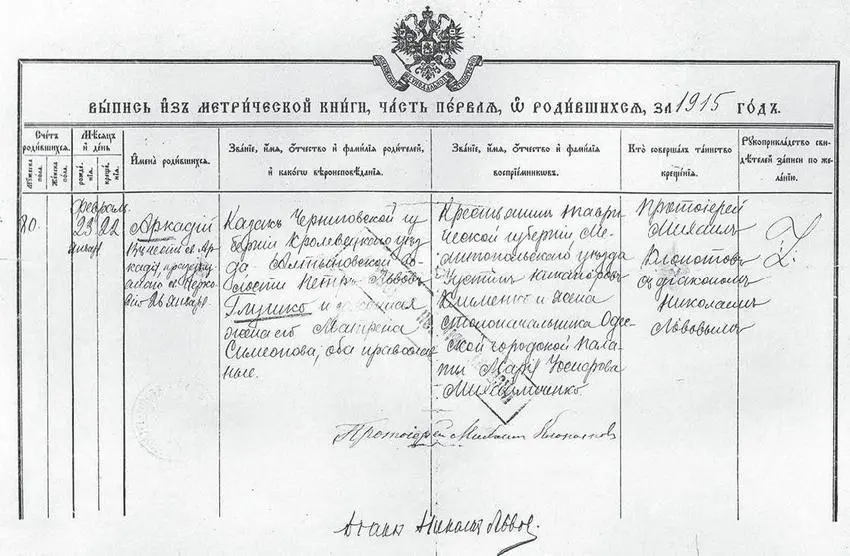 ВЫПИСЬ ИЗЪ МЕТРИЧЕСКОЙ КНИГИ, ЧАСТЬ ПЕРВАЯ, Ѿ РОДИВШИХСЯ, ЗА 1915 ГОДЪ.
Счетъ родившихся.
Мужеска пола.
Женска пола.
Мѣсяцъ и день
рожденія.
крещенія.
Имена родившихся.
Званіе, имя, отчество и фамилія родителей, и какого вѣроисповѣданія.
Званіе, имя, отчество и фамилія воспріемниковъ.
Кто совершалъ таинство крещенія.
Рукоприкладство свидѣтелей записи по желанію.
80.
Февраль
23 22
Январ
Аркадій
Казакъ Черниговской гу
берніи Кролевецкаго уѣз
да
лости Петръ Львовъ
Глушко и законная
жена его Матрена
Симеонова, оба православ
ные.
Крестьянинъ Таври
ческой губерніи Ме
литопольскаго уѣзда
Устинъ Никаноровъ
Клименко и жена
столоначальника Одес
ской городской пала
ты Марія
Протоіерей
Михаилъ
Клопотовъ
съ діакономъ
Николаемъ
Львовымъ
Протоіерей Михаилъ Клопотовъ
Діаконъ Николай Львовъ.